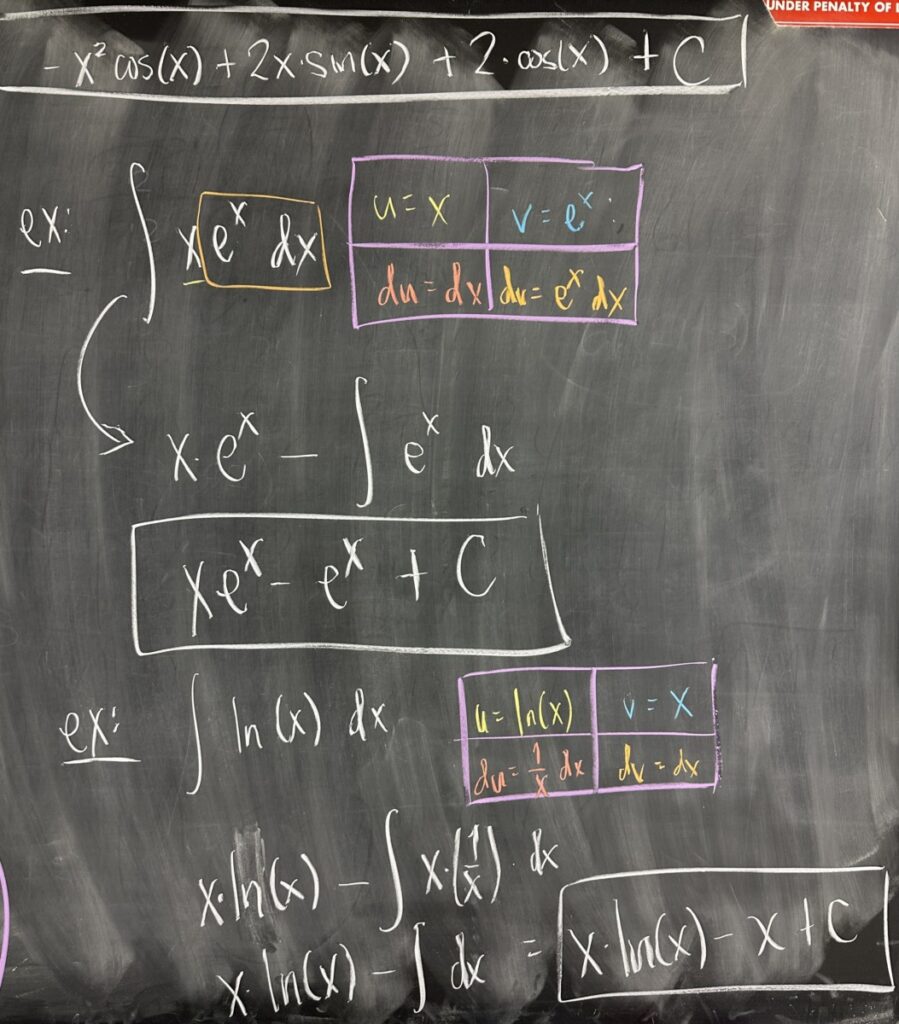 UNDER PENALTY OF
-x² cos(x) + 2x·sin(x) + 2·cos(x) + C
ex: ∫ x e^x dx
u = x
v = e^x
du = dx
dv = e^x dx
x·e^x - ∫ e^x dx
xe^x - e^x + C
ex: ∫ ln(x) dx
u = ln(x)
v = x
du = 1/x dx
dv = dx
x·ln(x) - ∫ x·(1/x)·dx
x·ln(x) - ∫ dx = x·ln(x) - x + C